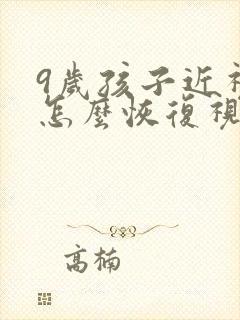 9歲孩子近視
怎麼恢復視
高楠